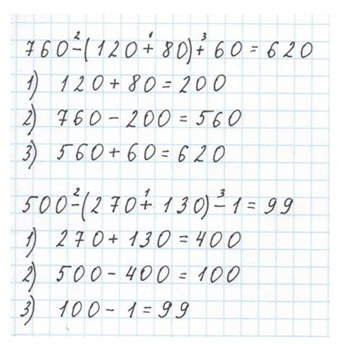 760-²(120+¹80)+³60=620
1) 120+80=200
2) 760-200=560
3) 560+60=620
500-²(270+¹130)-³1=99
1) 270+130=400
2) 500-400=100
3) 100-1=99